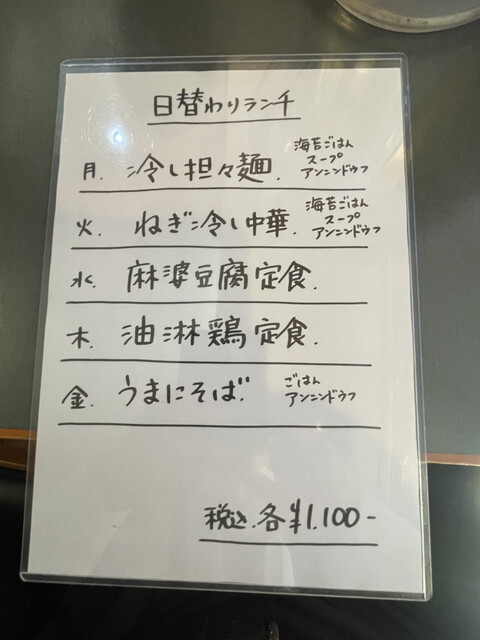 日替わりランチ
月. 冷し担々麺. 海苔ごはん
スープ
アンニンドウフ
火. ねぎ冷し中華. 海苔ごはん
スープ
アンニンドウフ
水. 麻婆豆腐定食.
木. 油淋鶏定食.
金. うまにそば. ごはん
アンニンドウフ
税込.各¥1.100-